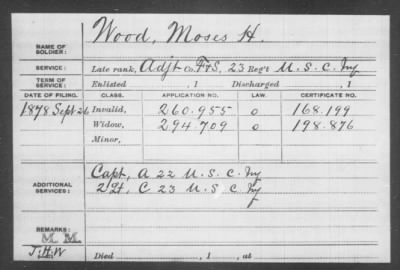 NAME OF SOLDIER: Wood, Moses H.
SERVICE: Late rank, Adjt Co. F&S, 23 Reg't U. S. C. Inf
TERM OF SERVICE: Enlisted , 1 Discharged , 1
DATE OF FILING. CLASS. APPLICATION NO. LAW. CERTIFICATE NO.
1878 Sept 26 Invalid, 260.955 o 168.199
Widow, 294.709 o 198.876
Minor,
ADDITIONAL SERVICES: Capt, A 22 U. S. C. Inf
2 Lt, C 23 U. S. C. Inf
REMARKS:
M. M.
J.H.W
Died , 1 , at